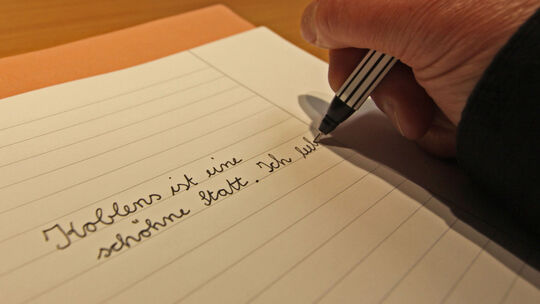 Koblens ist eine
schöhne Statt. Ich leb